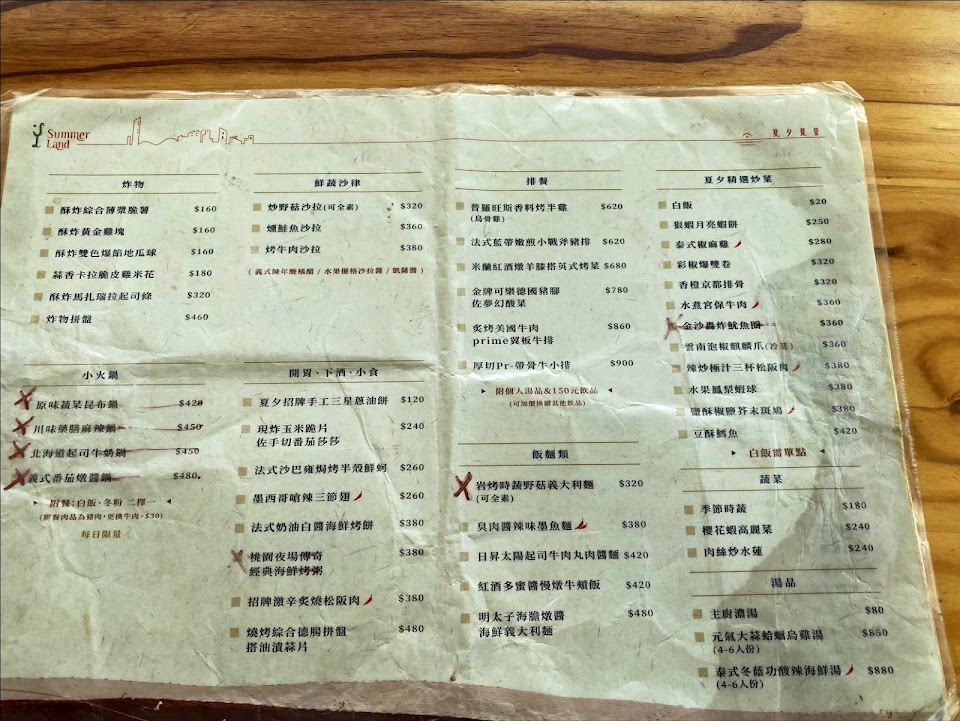 Summer
Land
夏夕夏景
炸物
酥炸綜合薄漿脆薯 $160
酥炸黃金雞塊 $160
酥炸雙色爆餡地瓜球 $160
蒜香卡拉脆皮雞米花 $180
酥炸馬扎瑞拉起司條 $320
炸物拼盤 $460
小火鍋
原味蔬菜昆布鍋 $420
川味藥膳麻辣鍋 $450
北海道起司牛奶鍋 $450
義式番茄燉醬鍋 $480
附餐:白飯、冬粉 二擇一
(附餐肉品為豬肉,更換牛肉+$30)
每日限量
鮮蔬沙律
炒野菇沙拉(可全素) $320
燻鮭魚沙拉 $360
烤牛肉沙拉 $380
(義式陳年酸橘醋 / 水果優格沙拉醬 / 凱薩醬)
開胃、下酒、小食
夏夕招牌手工三星蔥油餅 $120
現炸玉米脆片 $240
佐手切番茄莎莎
法式沙巴雍焗烤半殼鮮蚵 $260
墨西哥嗆辣三節翅 $260
法式奶油白醬海鮮烤餅 $380
桃園夜場傳奇 $380
經典海鮮烤粥
招牌激辛炙燒松阪肉 $380
燒烤綜合德腸拼盤 $480
搭油漬蒜片
排餐
普羅旺斯香料烤半雞 $620
(烏骨雞)
法式藍帶嫩煎小戰斧豬排 $620
米蘭紅酒燉羊膝搭英式烤菜 $680
金牌可樂德國豬腳 $780
佐夢幻酸菜
炙烤美國牛肉 $860
prime翼板牛排
厚切Pr-帶骨牛小排 $900
附個人湯品&150元飲品
(可加價換購其他飲品)
飯麵類
岩烤時蔬野菇義大利麵 $320
(可全素)
臭肉醬辣味墨魚麵 $380
日昇太陽起司牛肉丸肉醬麵 $420
紅酒多蜜醬慢燉牛頰飯 $420
明太子海膽燉醬 $480
海鮮義大利麵
夏夕精選炒菜
白飯 $20
狠蝦月亮蝦餅 $250
泰式椒麻雞 $280
彩椒爆雙卷 $320
香橙京都排骨 $320
水煮宮保牛肉 $360
金沙轟炸魷魚圈 $360
雲南泡椒麒麟爪(冷菜) $360
辣炒極汁三杯松阪肉 $380
水果鳳梨蝦球 $380
鹽酥椒鹽芥末斑鳩 $380
豆酥鱈魚 $420
白飯需單點
蔬菜
季節時蔬 $180
櫻花蝦高麗菜 $240
肉絲炒水蓮 $240
湯品
主廚濃湯 $80
元氣大蒜蛤蠣烏雞湯 $850
(4-6人份)
泰式冬蔭功酸辣海鮮湯 $880
(4-6人份)